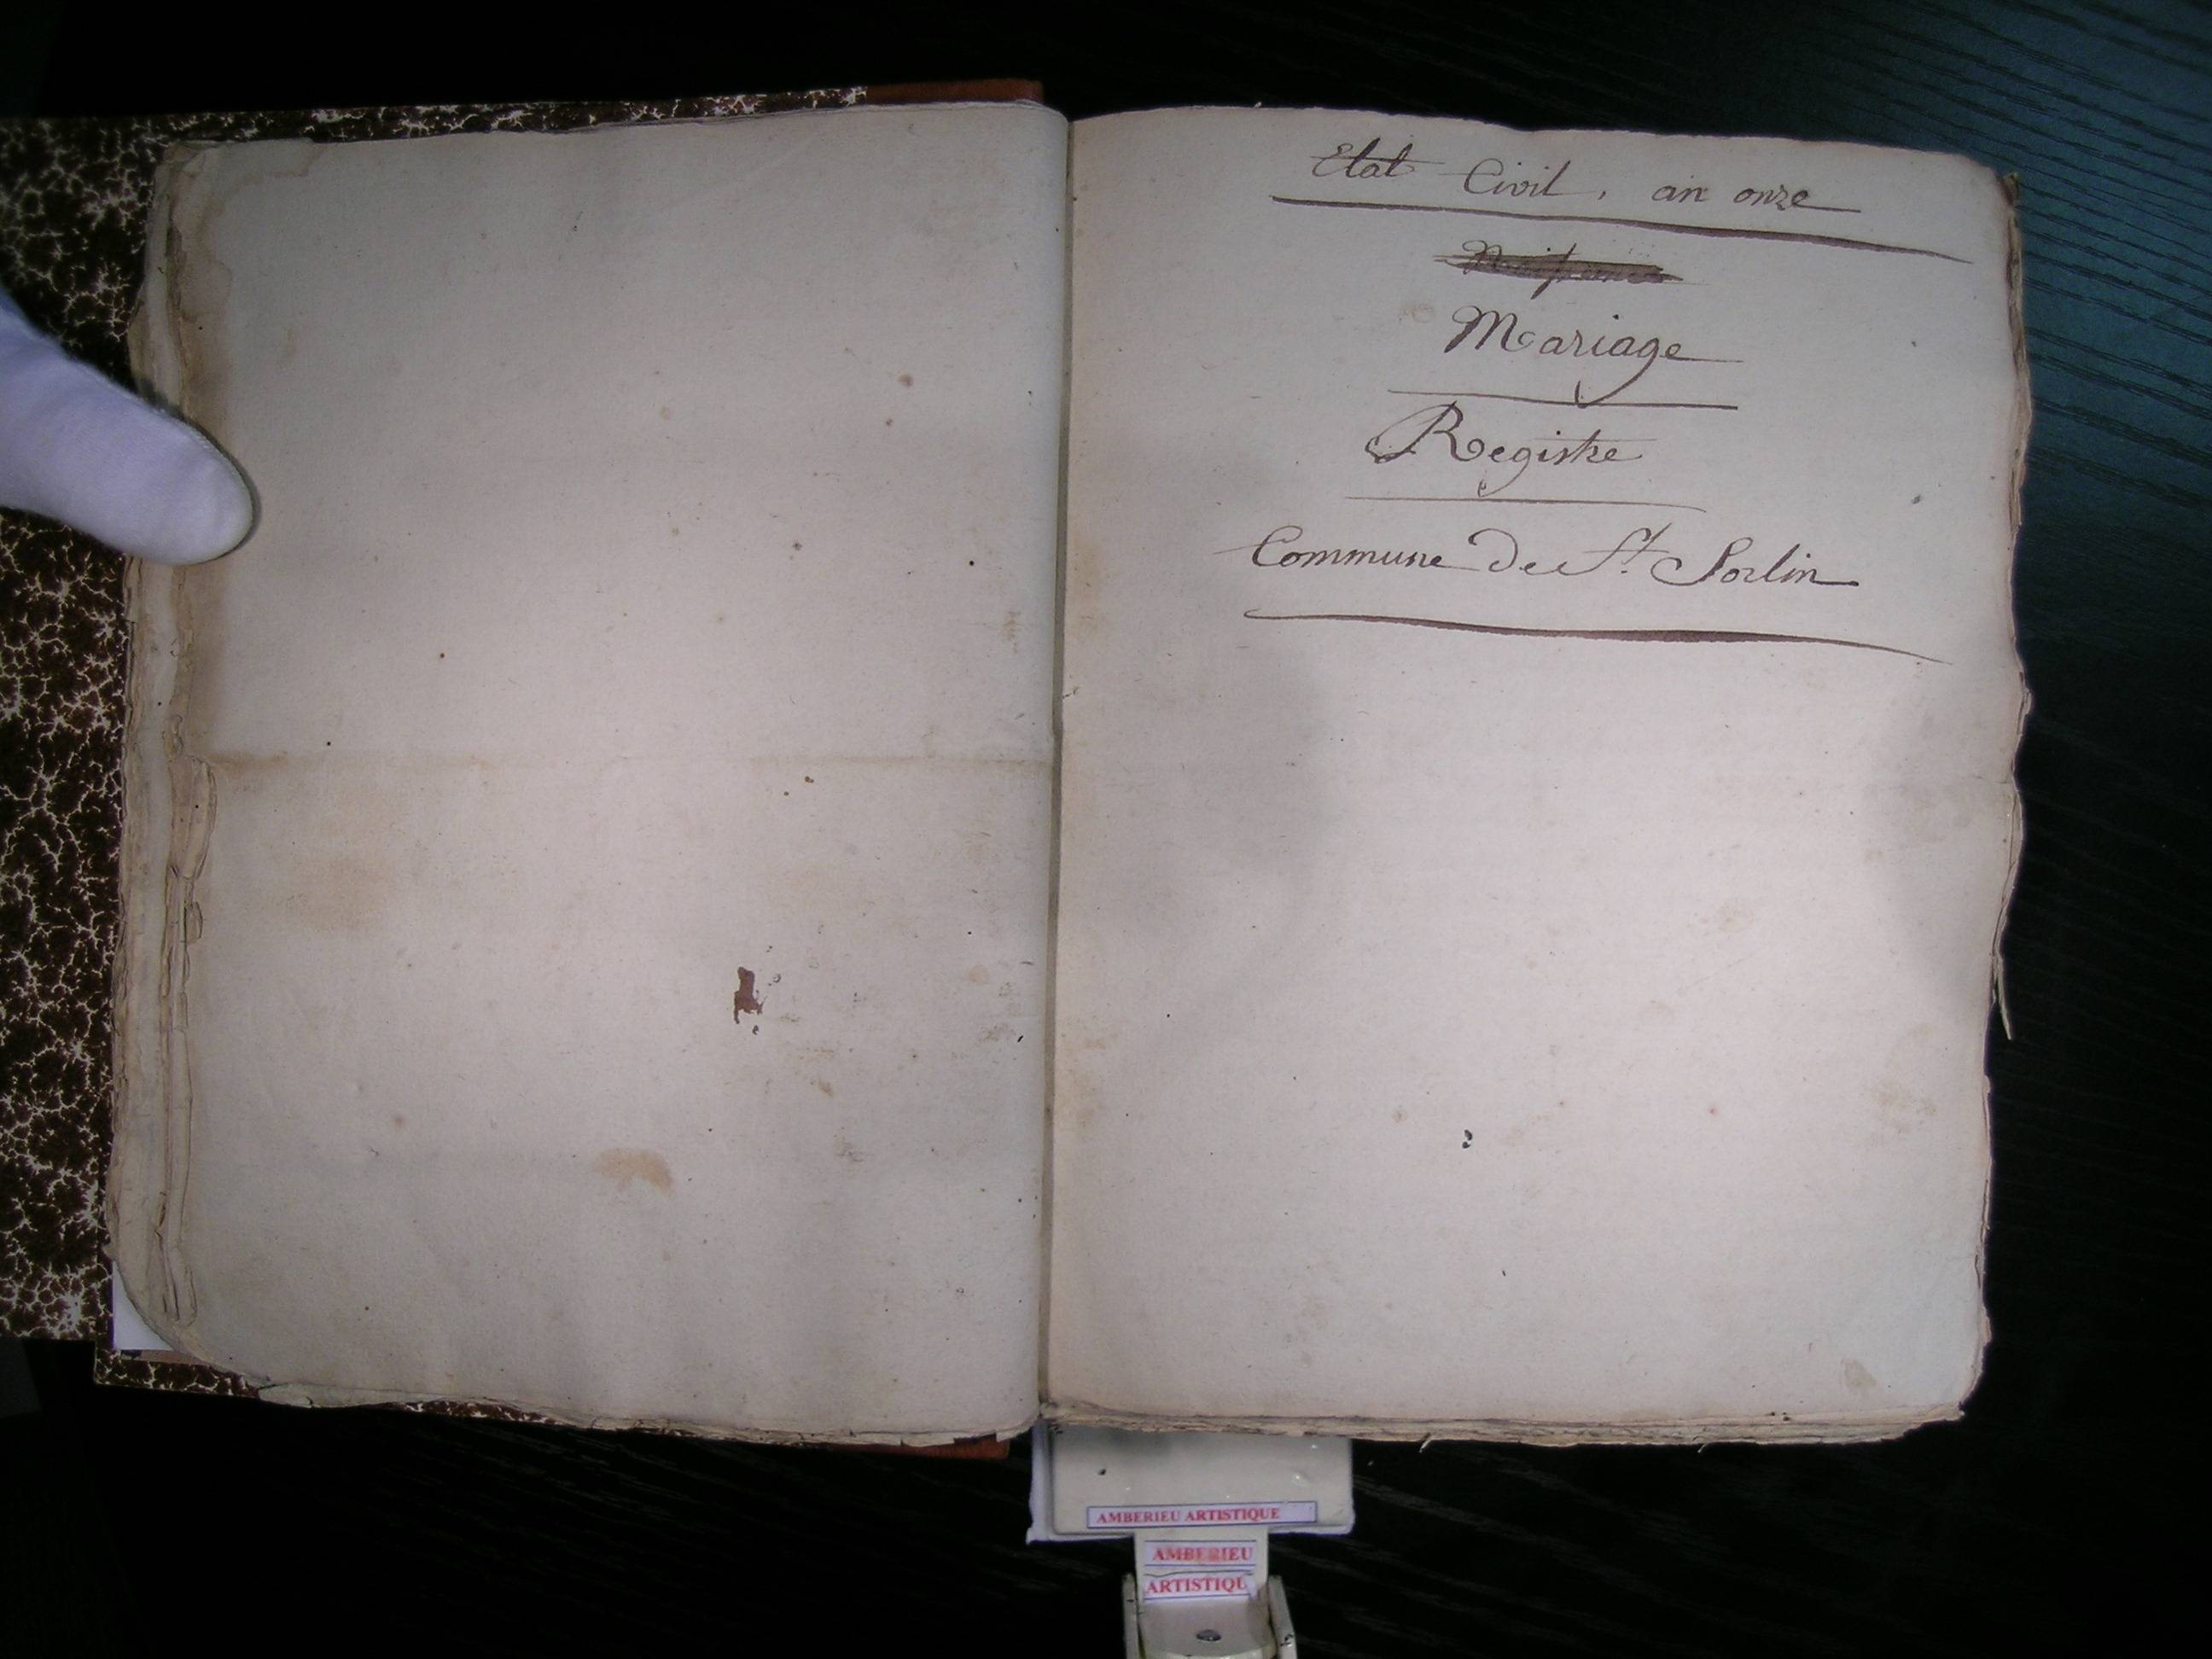 Etat Civil, an onze
Mariage
Registre
Commune De St. Sorlin
AMBERIEU ARTISTIQUE
AMBERIEU
ARTISTIQU